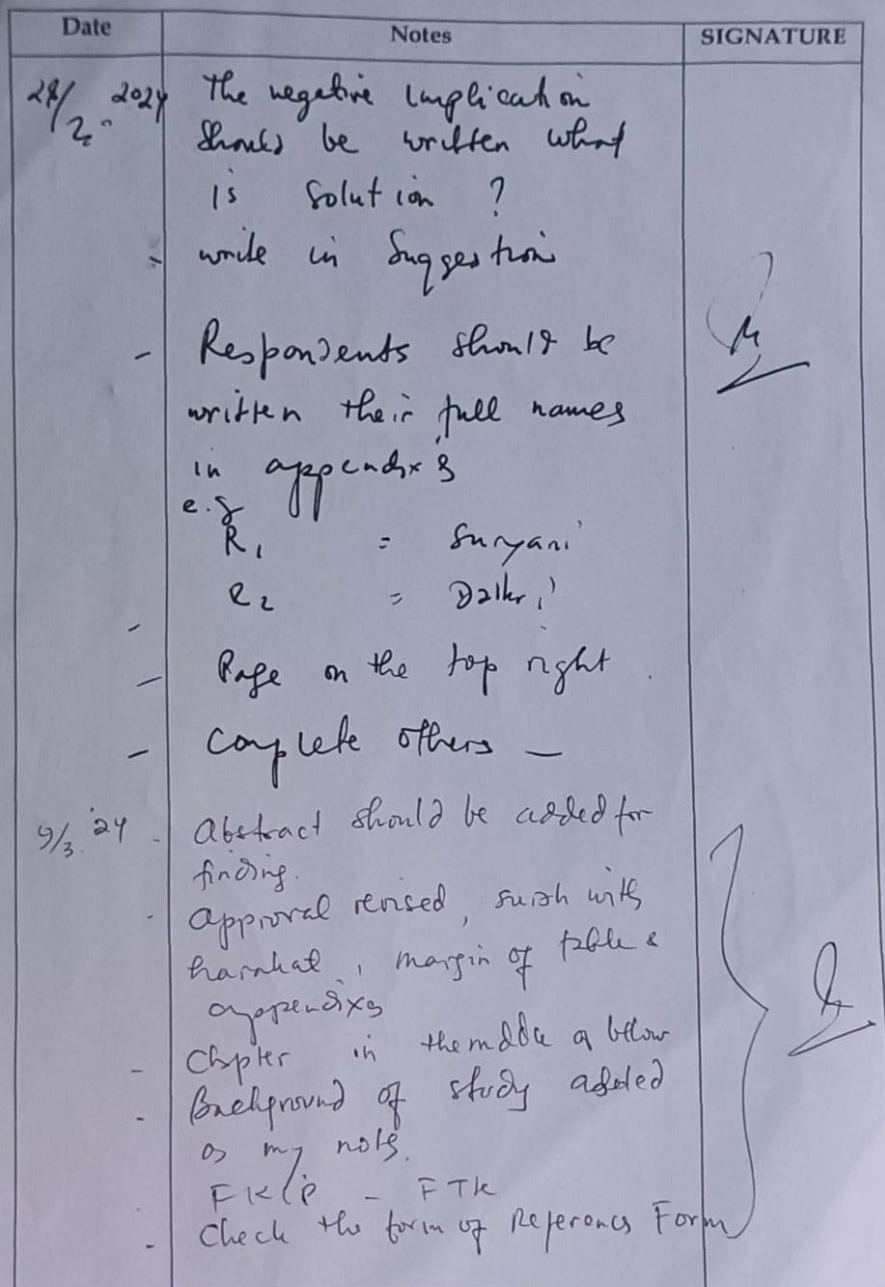 Date Notes SIGNATURE
28/2-2024 The negative implication
should be written what
is solution ?
- write in Suggestion
- Respondents should be
written their full names
in appendixs
e.g
R1 = Suryani
R2 =
-
- Page on the top right.
- Complete others -
9/3 '24 - Abstract should be added for
finding.
- approval revised, surah with
harakat, margin of table &
appendixs
- Chapter in the middle a below
- Background of study added
as my note.
FKIP - FTK
- Check the form of References Form